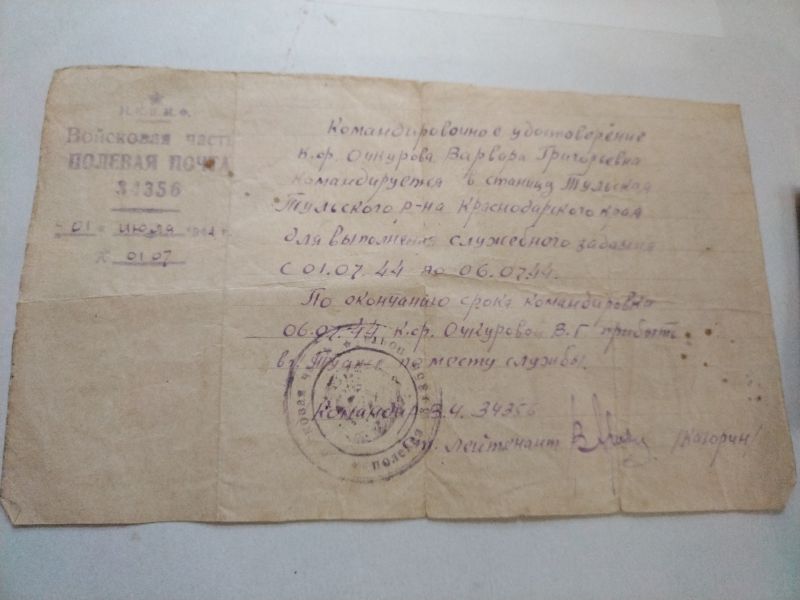 Войсковая часть
ПОЛЕВАЯ ПОЧТА
34356
"01" июля 1944 г.
01 07
Командировочное удостоверение
к.ф. Очкурова Варвара Григорьевна
командируется в станицу Тульская
Тульского р-на Краснодарского края
для выполнения служебного задания
с 01.07.44 по 06.07.44.
По окончанию срока командировки
06.07.44 к.ф. Очкурово В.Г прибыть
в г. по месту службы.
Командир В.Ч. 34356
лейтенант
полевая почта